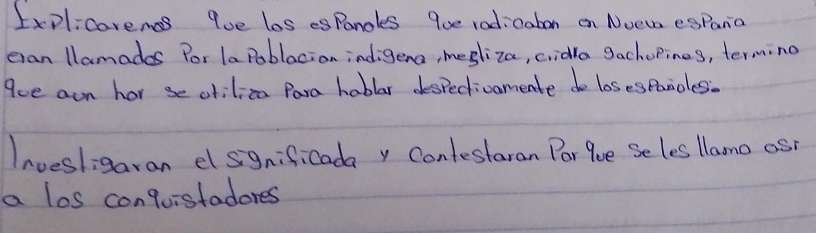 Explicaremos que los españoles que radicaban en Nueva españa
eran llamados Por la Poblacion indigena, mestiza, criolla gachupines, termino
que aun hoy se utiliza Para hablar despectivamente de los españoles.
Investigaran el significada y Contestaran Por que se les llamo asi
a los conquistadores